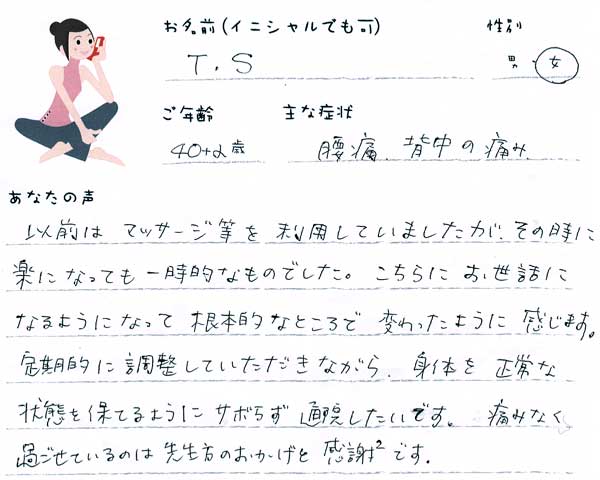 お名前(イニシャルでも可) 性別
T.S 男・女
ご年齢 主な症状
40+α歳 腰痛、背中の痛み
あなたの声
以前はマッサージ等を利用していましたが、その時に
楽になっても一時的なものでした。こちらにお世話に
なるようになって根本的なところで変わったように感じます。
定期的に調整していただきながら、身体を正常な
状態を保てるようにサボらず通院したいです。痛みなく
過ごせているのは先生方のおかげと感謝²です。